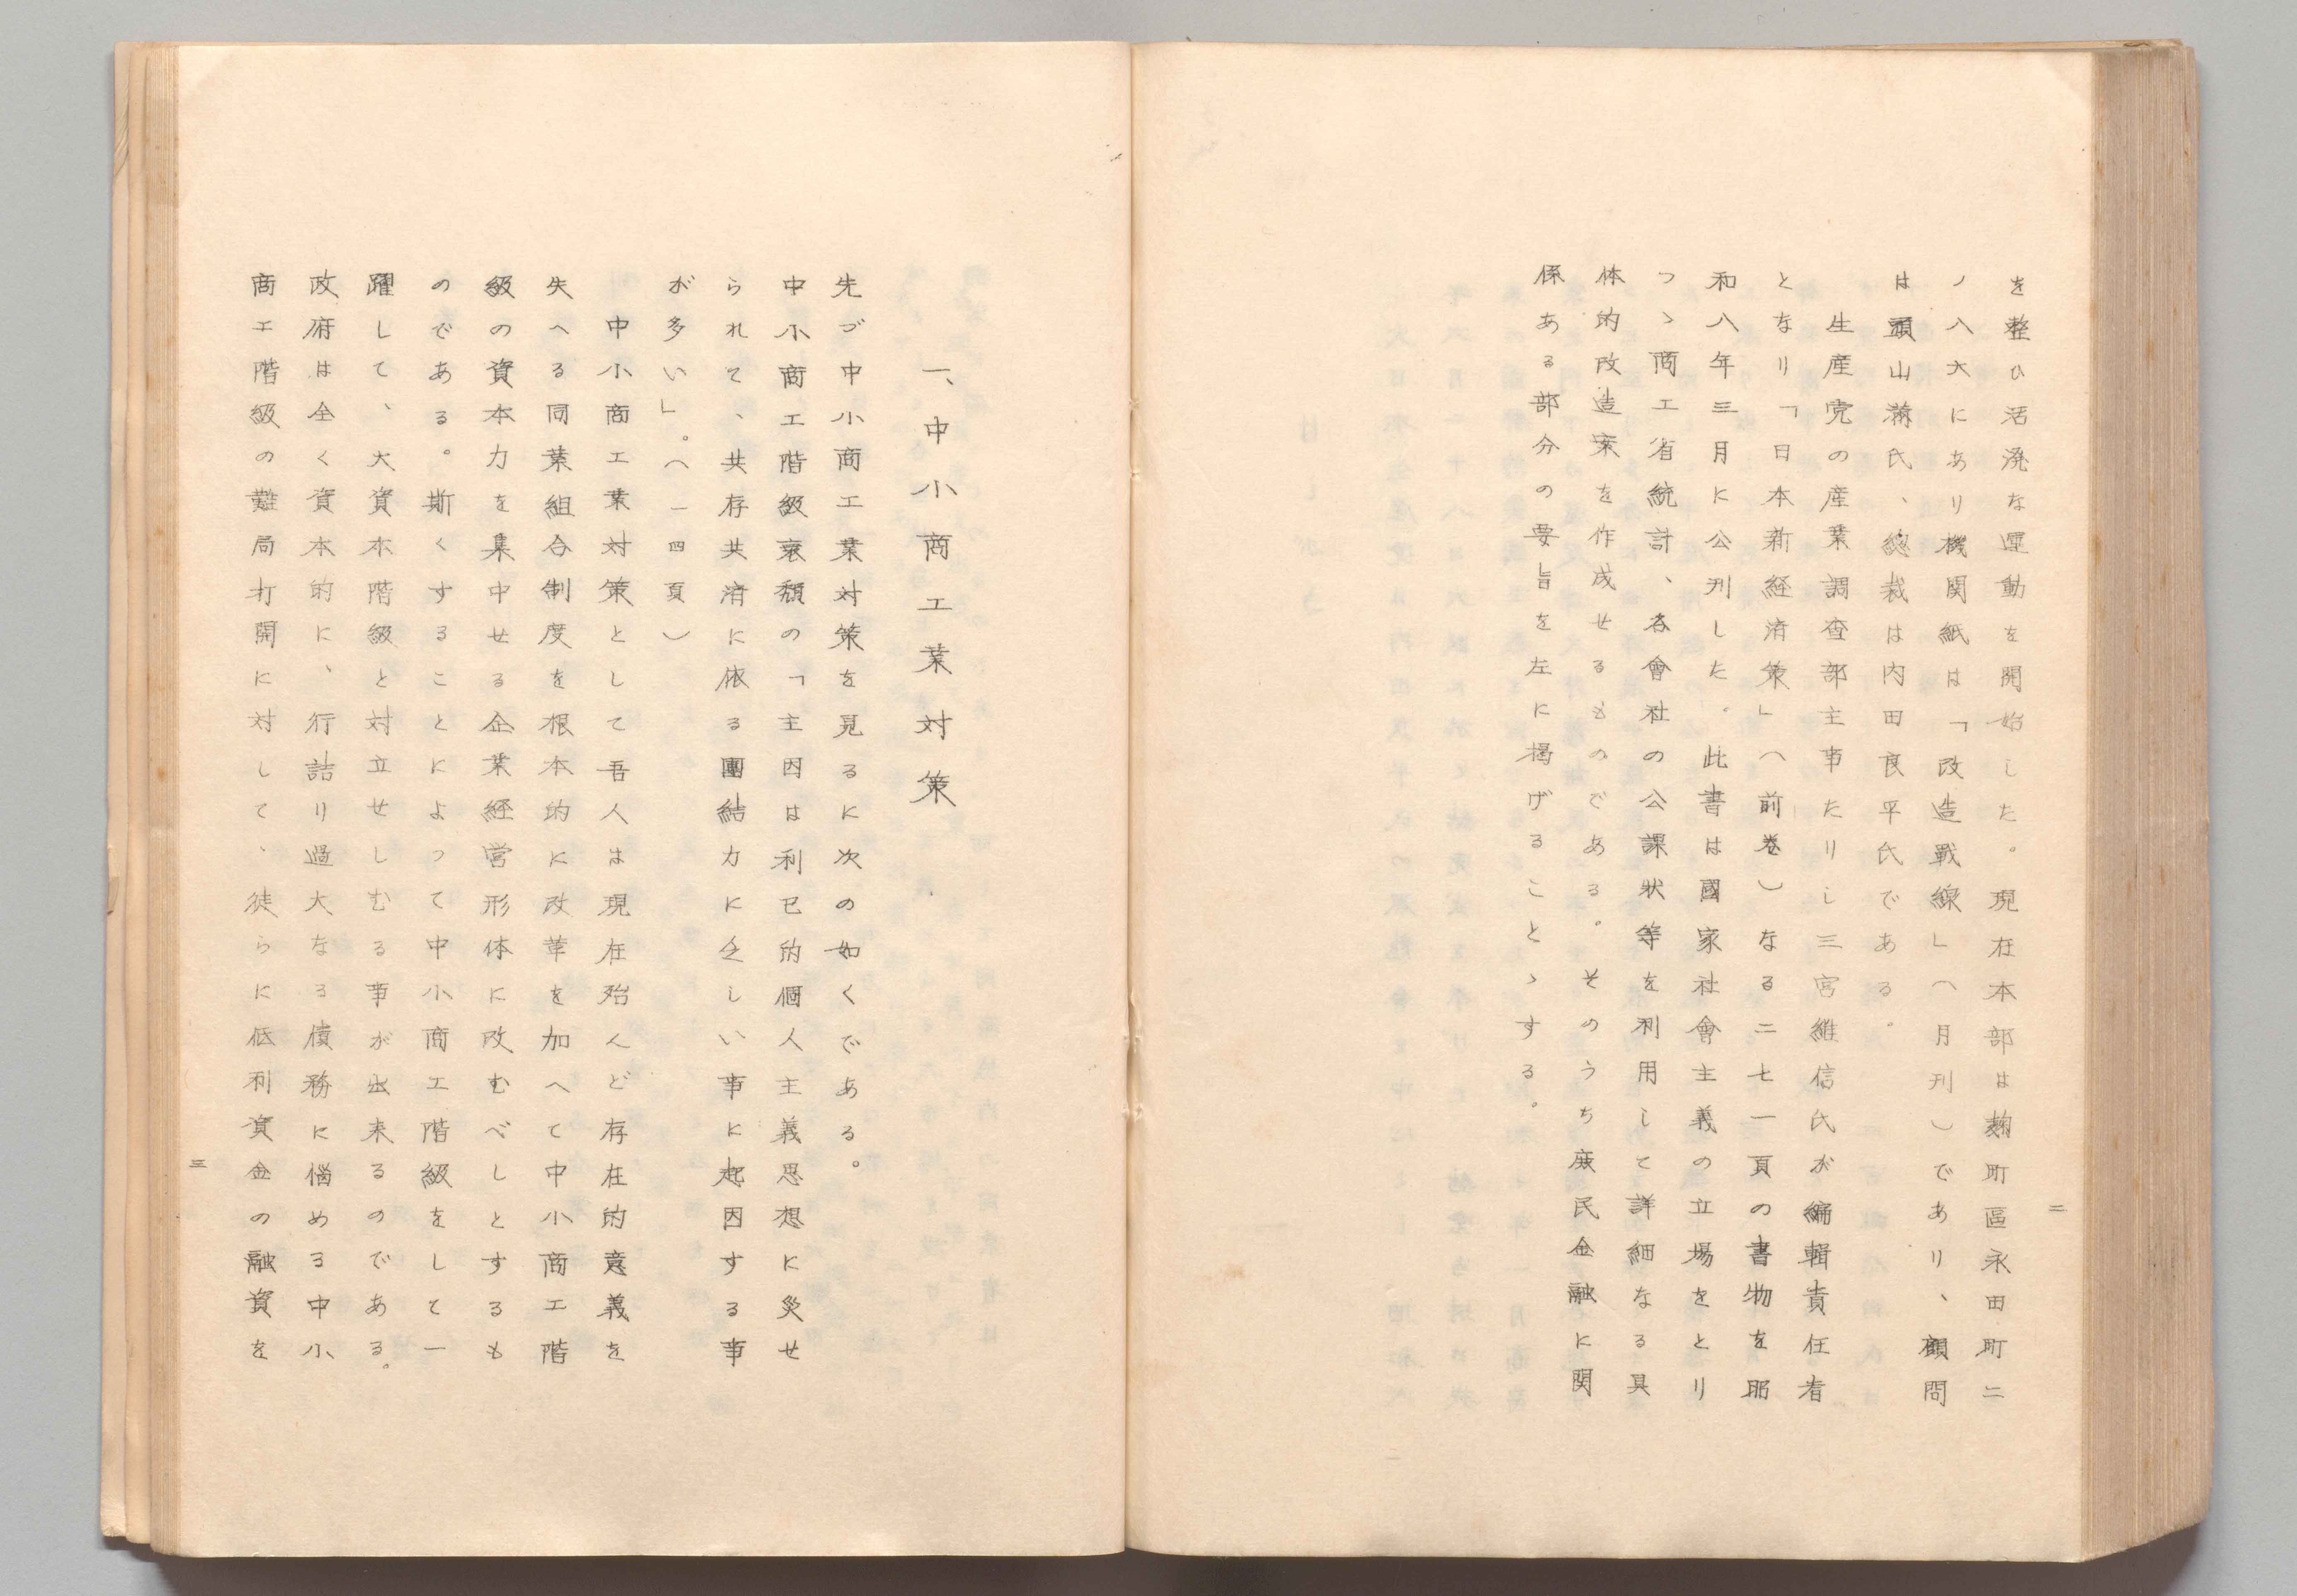 を整ひ活溌な運動を開始した。現在本部は麹町區永田町二
ノ八六にあり機関紙は「改造戰線」（月刊）であり、顧問
は頭山満氏、總裁は内田良平氏である。
生産党の産業調査部主事たりし三宮維信氏が編輯責任者
となり「日本新経済策」（前巻）なる二七一頁の書物を昭
和八年三月に公刊した。此書は國家社會主義の立場をとり
つゝ商工省統計、各會社の公課状等を利用して詳細なる具
体的改造案を作成せるものである。そのうち庶民金融に関
係ある部分の要旨を左に掲げることゝする。
二
一、中小商工業対策
先づ中小商工業対策を見るに次の如くである。
中小商工階級衰頽の「主因は利已的個人主義思想に災せ
られて、共存共済に依る團結力に乏しい事に起因する事
が多い」。（一四頁）
中小商工業対策として吾人は現在殆んど存在的意義を
失へる同業組合制度を根本的に改革を加へて中小商工階
級の資本力を集中せる企業経営形体に改むべしとするも
のである。斯くすることによつて中小商工階級をして一
躍して、大資本階級と対立せしむる事が出来るのである。
政府は全く資本的に、行詰り過大なる債務に悩める中小、
商工階級の難局打開に対して、徒らに低利資金の融資を
三